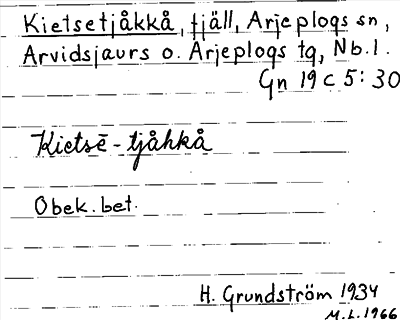 Kietsetjåkkå, fjäll, Arjeplogs sn,
Arvidsjaurs o. Arjeplogs tg, Nb.l.
Gn 19 C 5:30
Kietsē-tjåhkå
Obek. bet.
H. Grundström 1934
M.L. 1966